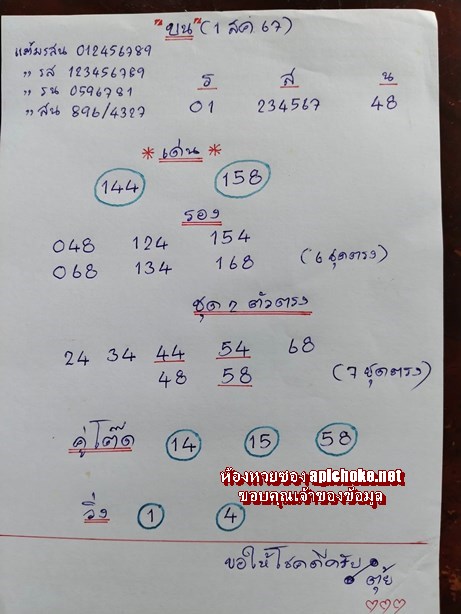 "บน" (1 สค 67)
แต้มรสน 012456789
" รส 123456789
" รน 0596781
" สน 896/4327
ร ส น
01 234567 48
* เด่น *
144 158
รอง
048 124 154
068 134 168 (6 ชุดตรง)
ชุด 2 ตัวตรง
24 34 44 54 68
48 58 (7 ชุดตรง)
คู่โต๊ด 14 15 58
ห้องหวยซอง apichoke.net
ขอบคุณเจ้าของข้อมูล
วิ่ง 1 4
ขอให้โชคดีครับ
ตุ้ย